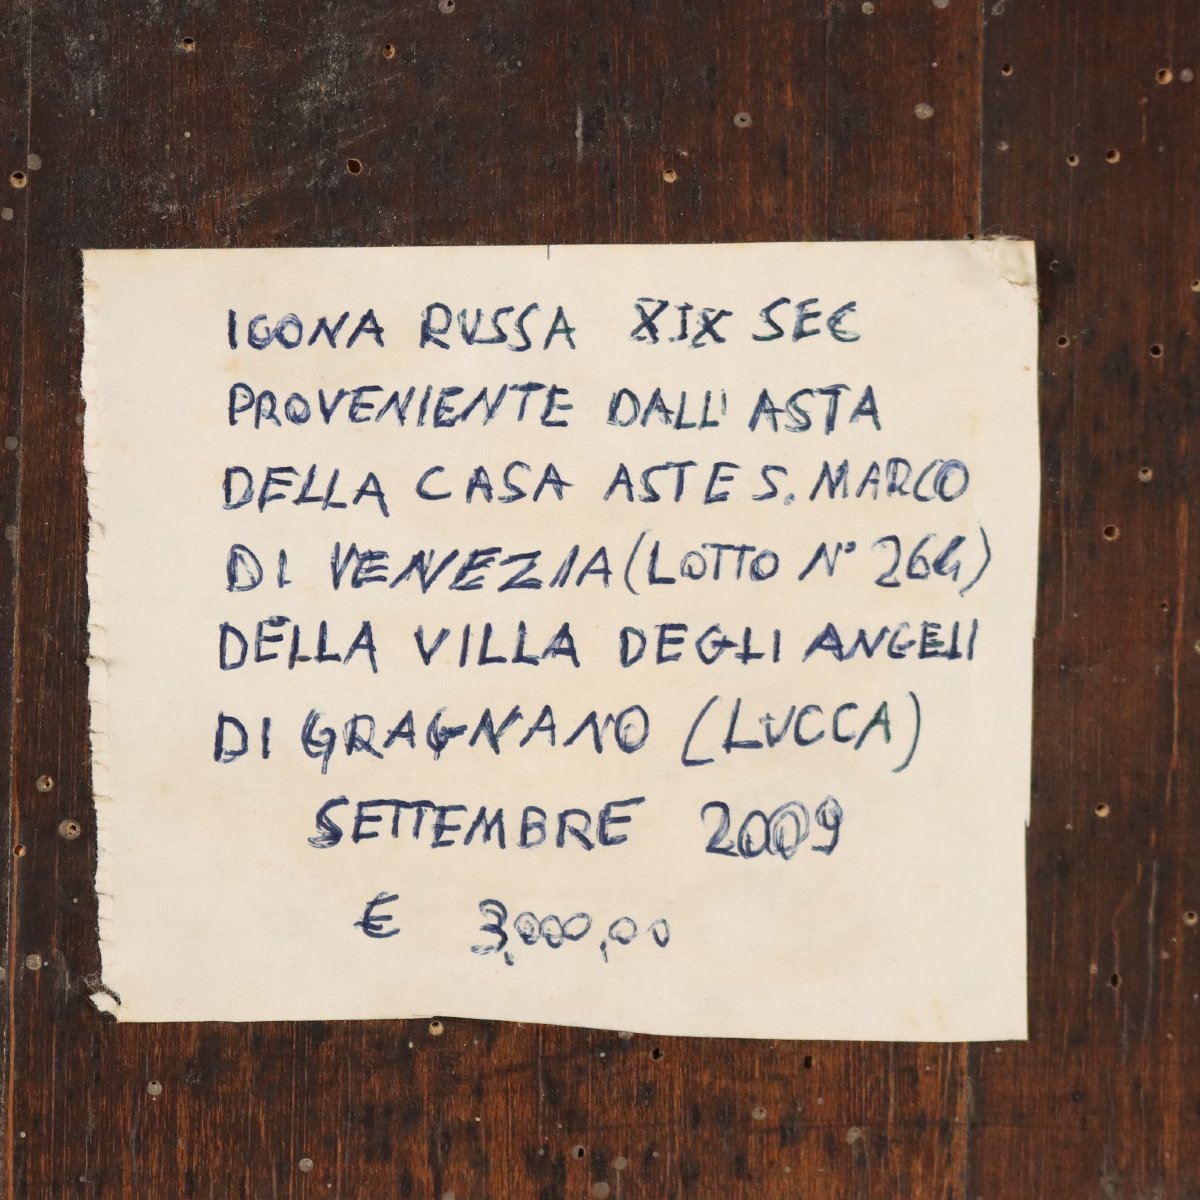 ICONA RUSSA XIX SEC
PROVENIENTE DALL' ASTA
DELLA CASA ASTE S. MARCO
DI VENEZIA (LOTTO N° 264)
DELLA VILLA DEGLI ANGELI
DI GRAGNANO (LUCCA)
SETTEMBRE 2009
€ 3,000,00